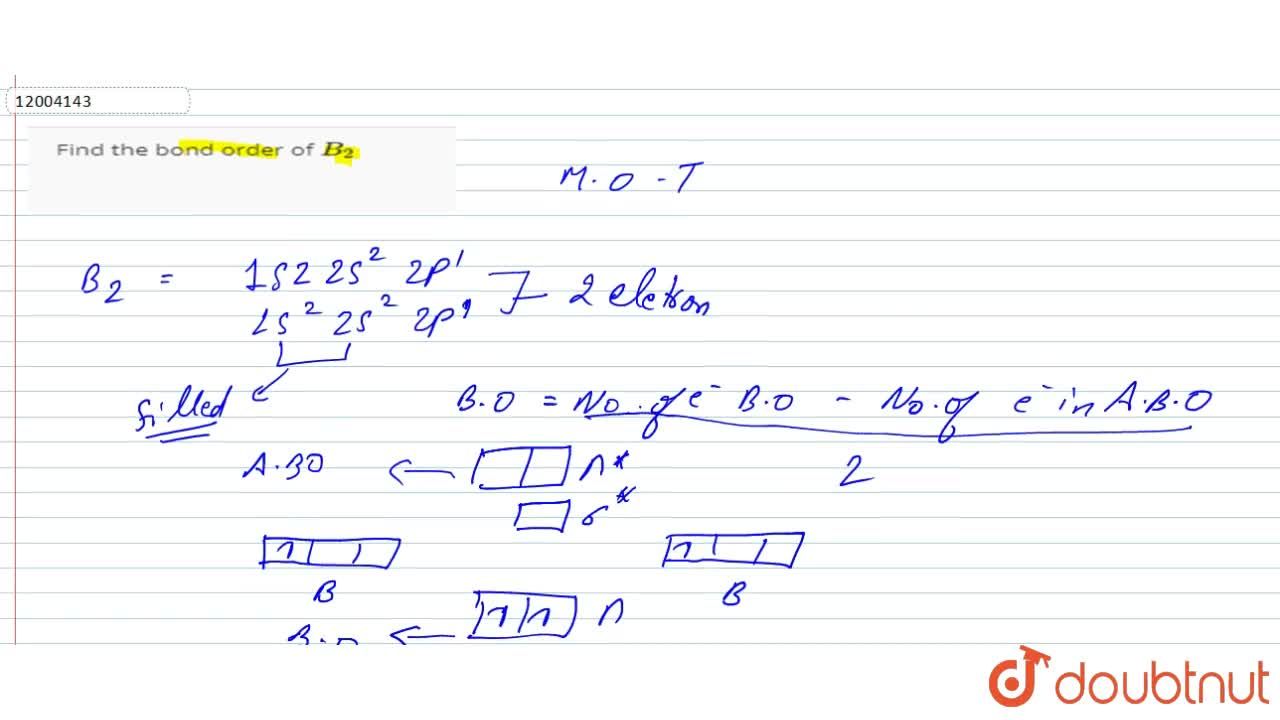 12004143
Find the bond order of B₂
M.O-T
B₂ = 1S2 2S² 2P¹
1S² 2S² 2P¹ } 2 eletron
filled
B.O = No. of e⁻ B.O - No. of e⁻ in A.B.O
2
A.BO ← π*
σ*
1 1
B B
B.O ← 1 1 π
doubtnut